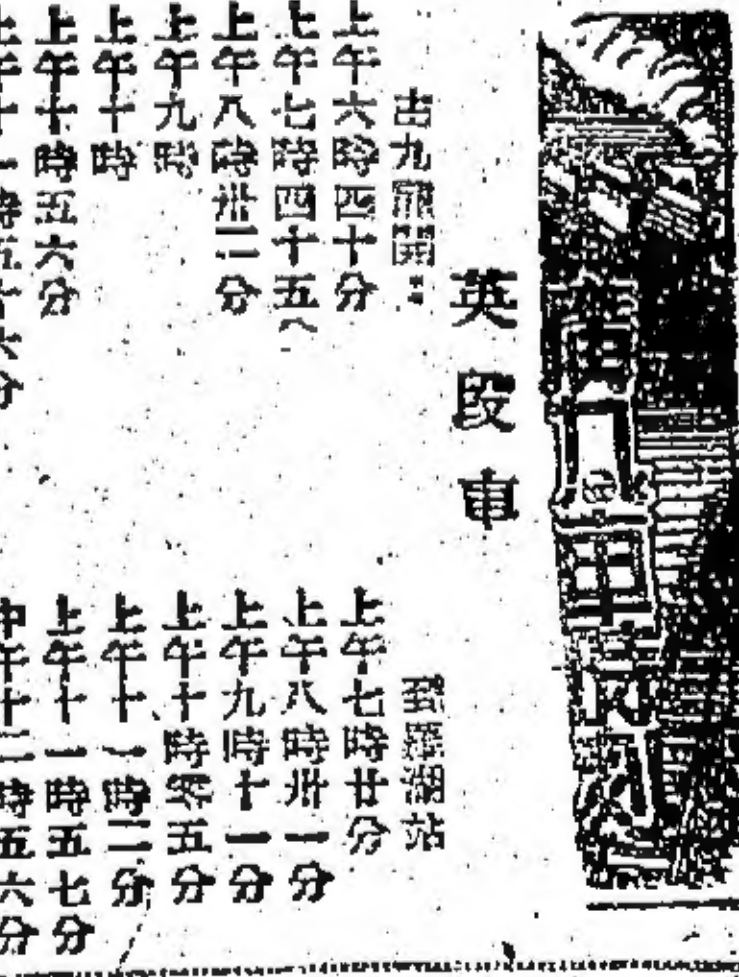 英段車
由九龍開：
上午六時四十分
上午七時四十五
上午八時卅二分
上午九時
上午十時
上午十時五六分
上午十一時五十六分
到羅湖站
上午七時廿分
上午八時卅一分
上午九時十一分
上午十時零五分
上午十一時二分
上午十一時五七分
中午十二時五六分